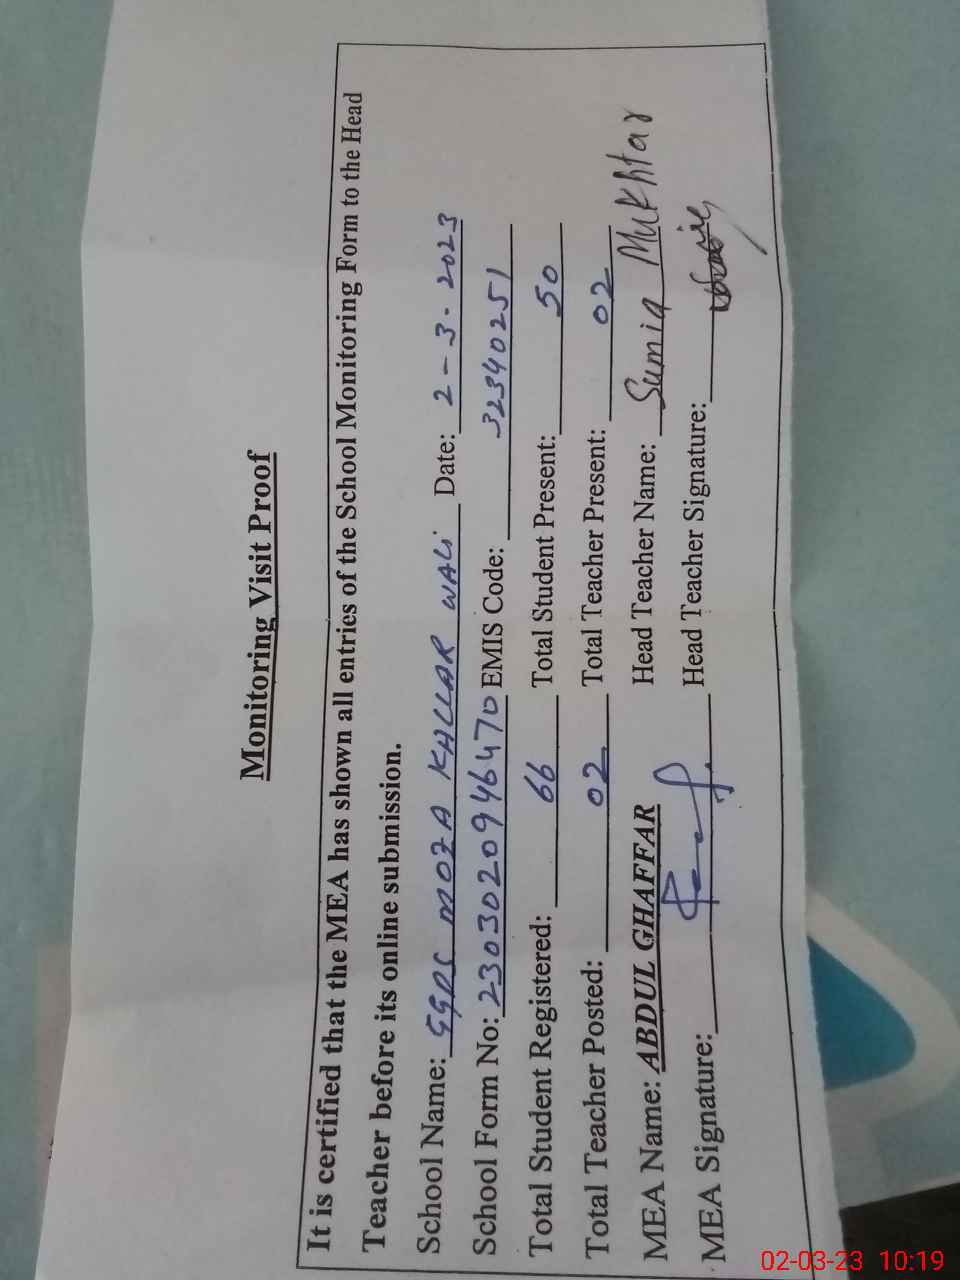 Monitoring Visit Proof
It is certified that the MEA has shown all entries of the School Monitoring Form to the Head
Teacher before its online submission.
School Name: GGPS MOZA KALLAR WALI Date: 2-3-2023
School Form No: 2303020946470 EMIS Code: 32340251
Total Student Registered: 66 Total Student Present: 50
Total Teacher Posted: 02 Total Teacher Present: 02
MEA Name: ABDUL GHAFFAR Head Teacher Name: Sumia Mukhtar
MEA Signature: Head Teacher Signature:
02-03-23 10:19